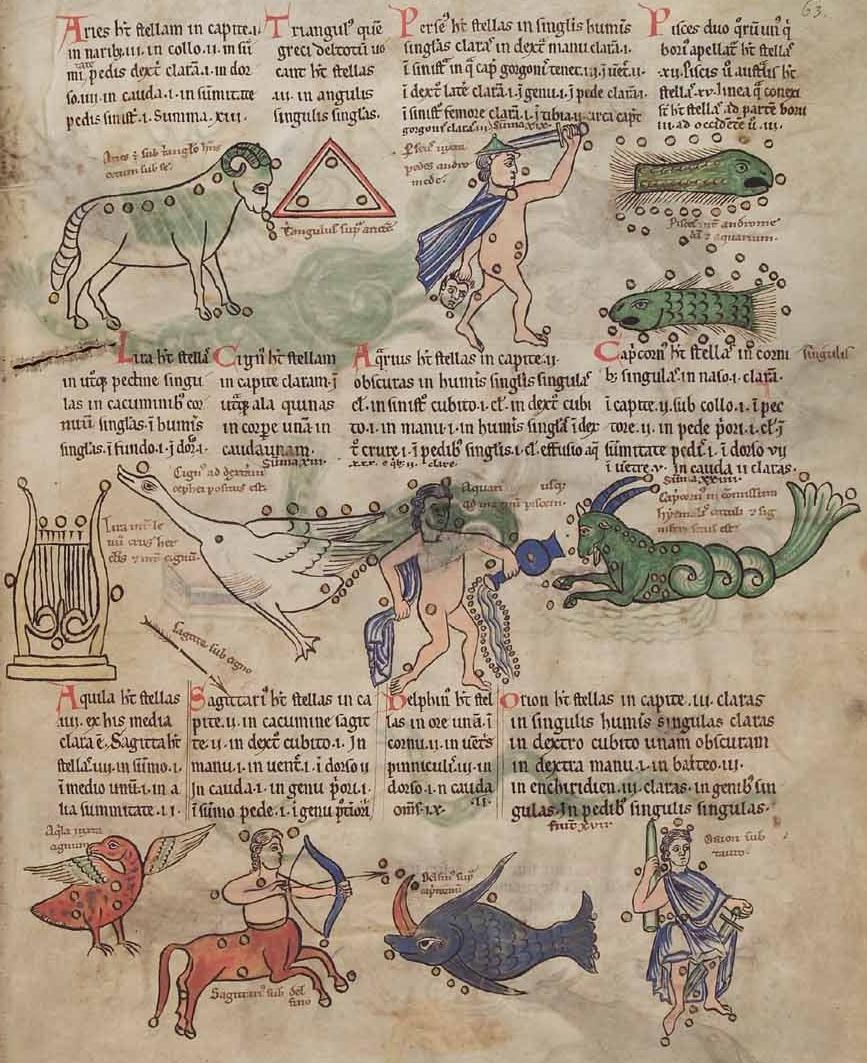 63.
Aries ħt stellam in capite .i.
in narib; .iii. in collo .ii. in sū
mi pedis dext̄ clarā .i. in dor
so .iiii. in cauda .i. in sūmitate
pedis sinist̄ .i. Summa .xiii.
Triangul' quē
greci deltotū uo
cant ħt stellas
.iii. in angulis
singulis singlas.
Perse' ħt stellas in singlis humis
singlas claras in dext̄ manu clarā .i.
ī sinist̄ in q̄ cap̄ gorgoni' tenet
ī dext̄ latē clarā .i. ī genu .i. ī pede clarā .i.
ī sinist̄ femore clarā .i. ī tibia .ii. circa cap̄t
gorgonis claras .iii. Sūma .xix.
Pisces duo q̄rū un' q̄
bori' apellat̄ ħt stellas
.xii. Piscis ū austlis ħt
stellas .xv. linea q̄ conexi
st̄ ħt stellas ad partē borii
.iii. ad occidētē ū .iii.
Aries ē sub t̄anglo
Tangulus sup̄ ariete.
Perse' iuxta
pedes andro
mede.
Pisces int̄ andromedē
et aquarium.
Lira ħt stellas
in utq̄; pectine singu
las in cacuminib; cor
nuū singlas. ī humis
singlas. ī fundo .i. ī dorso .i.
Cign' ħt stellam
in capite claram. ī
utq̄; ala quinas
in corpe unā in
cauda unam.
Sūma .xiii.
Aq̄rius ħt stellas in capite .ii.
obscuras in humis singlis singulas
cl̄. in sinist̄ cubito .i. cl̄. in dext̄ cubi
to .i. in manu .i. in humis singlā ī dex
t̄ crure .i. ī pedib; singlis .i. cl̄. effusio aq̄
.xxx. e q̄b; .ii. clare.
Capcorn' ħt stellas in corni singulis
b; singulas. in naso .i. clarā.
ī capite .ii. sub collo .i. ī pec
tore .ii. in pede p̄ori .i. cl̄. ī
sūmitate pedis .i. ī dorso .vii
ī uetre .v. In cauda .ii. claras.
Sūma .xxiiii.
Cign' ad dextram
cephei positus est.
Aquari' usq;
ad
Capcorn'
Sagitte sub cigno
Aquila ħt stellas
.iiii. ex his media
clara ē. Sagitta ħt
stellas .iiii. in sūmo .i.
ī medio unū .i. in a
lia summitate .ii.
Sagittari' ħt stellas in ca
pite .ii. in cacumine sagit
te .ii. in dext̄ cubito .i. In
manu .i. in uent̄ .i. ī dorso .ii
In cauda .i. in genu p̄ori .i.
ī sūmo pede .i. ī genu
Delphin' ħt stel
las in ore unā. ī
cornu .ii. in uent̄s
pinnicul' .iii. in
dorso .i. n cauda
.ii. om̄s .ix.
Orion ħt stellas in capite .iii. claras
in singulis humis singulas claras
in dextro cubito unam obscuram
in dextra manu .i. in balteo .iii.
in enchiridien .iii. claras. in genib; sin
gulas. In pedib; singulis singulas.
fiūt .xvii.
Aq̄la iuxta
cignum
Sagittari' sub del
fino
Delfin' sup̄
cap̄cornū
Orion sub
tauro.